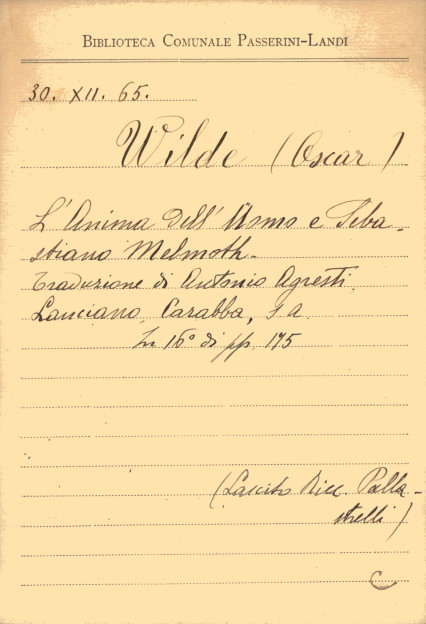 BIBLIOTECA COMUNALE PASSERINI-LANDI
30. XII. 65.
Wilde (Oscar)
L'Anima dell'Uomo e Seba-
stiano Melmoth.
Traduzione di Antonio Agresti.
Lanciano, Carabba, s. a.
In 16° di pp. 175
(Lascito Ricc. Palla-
strelli)
C